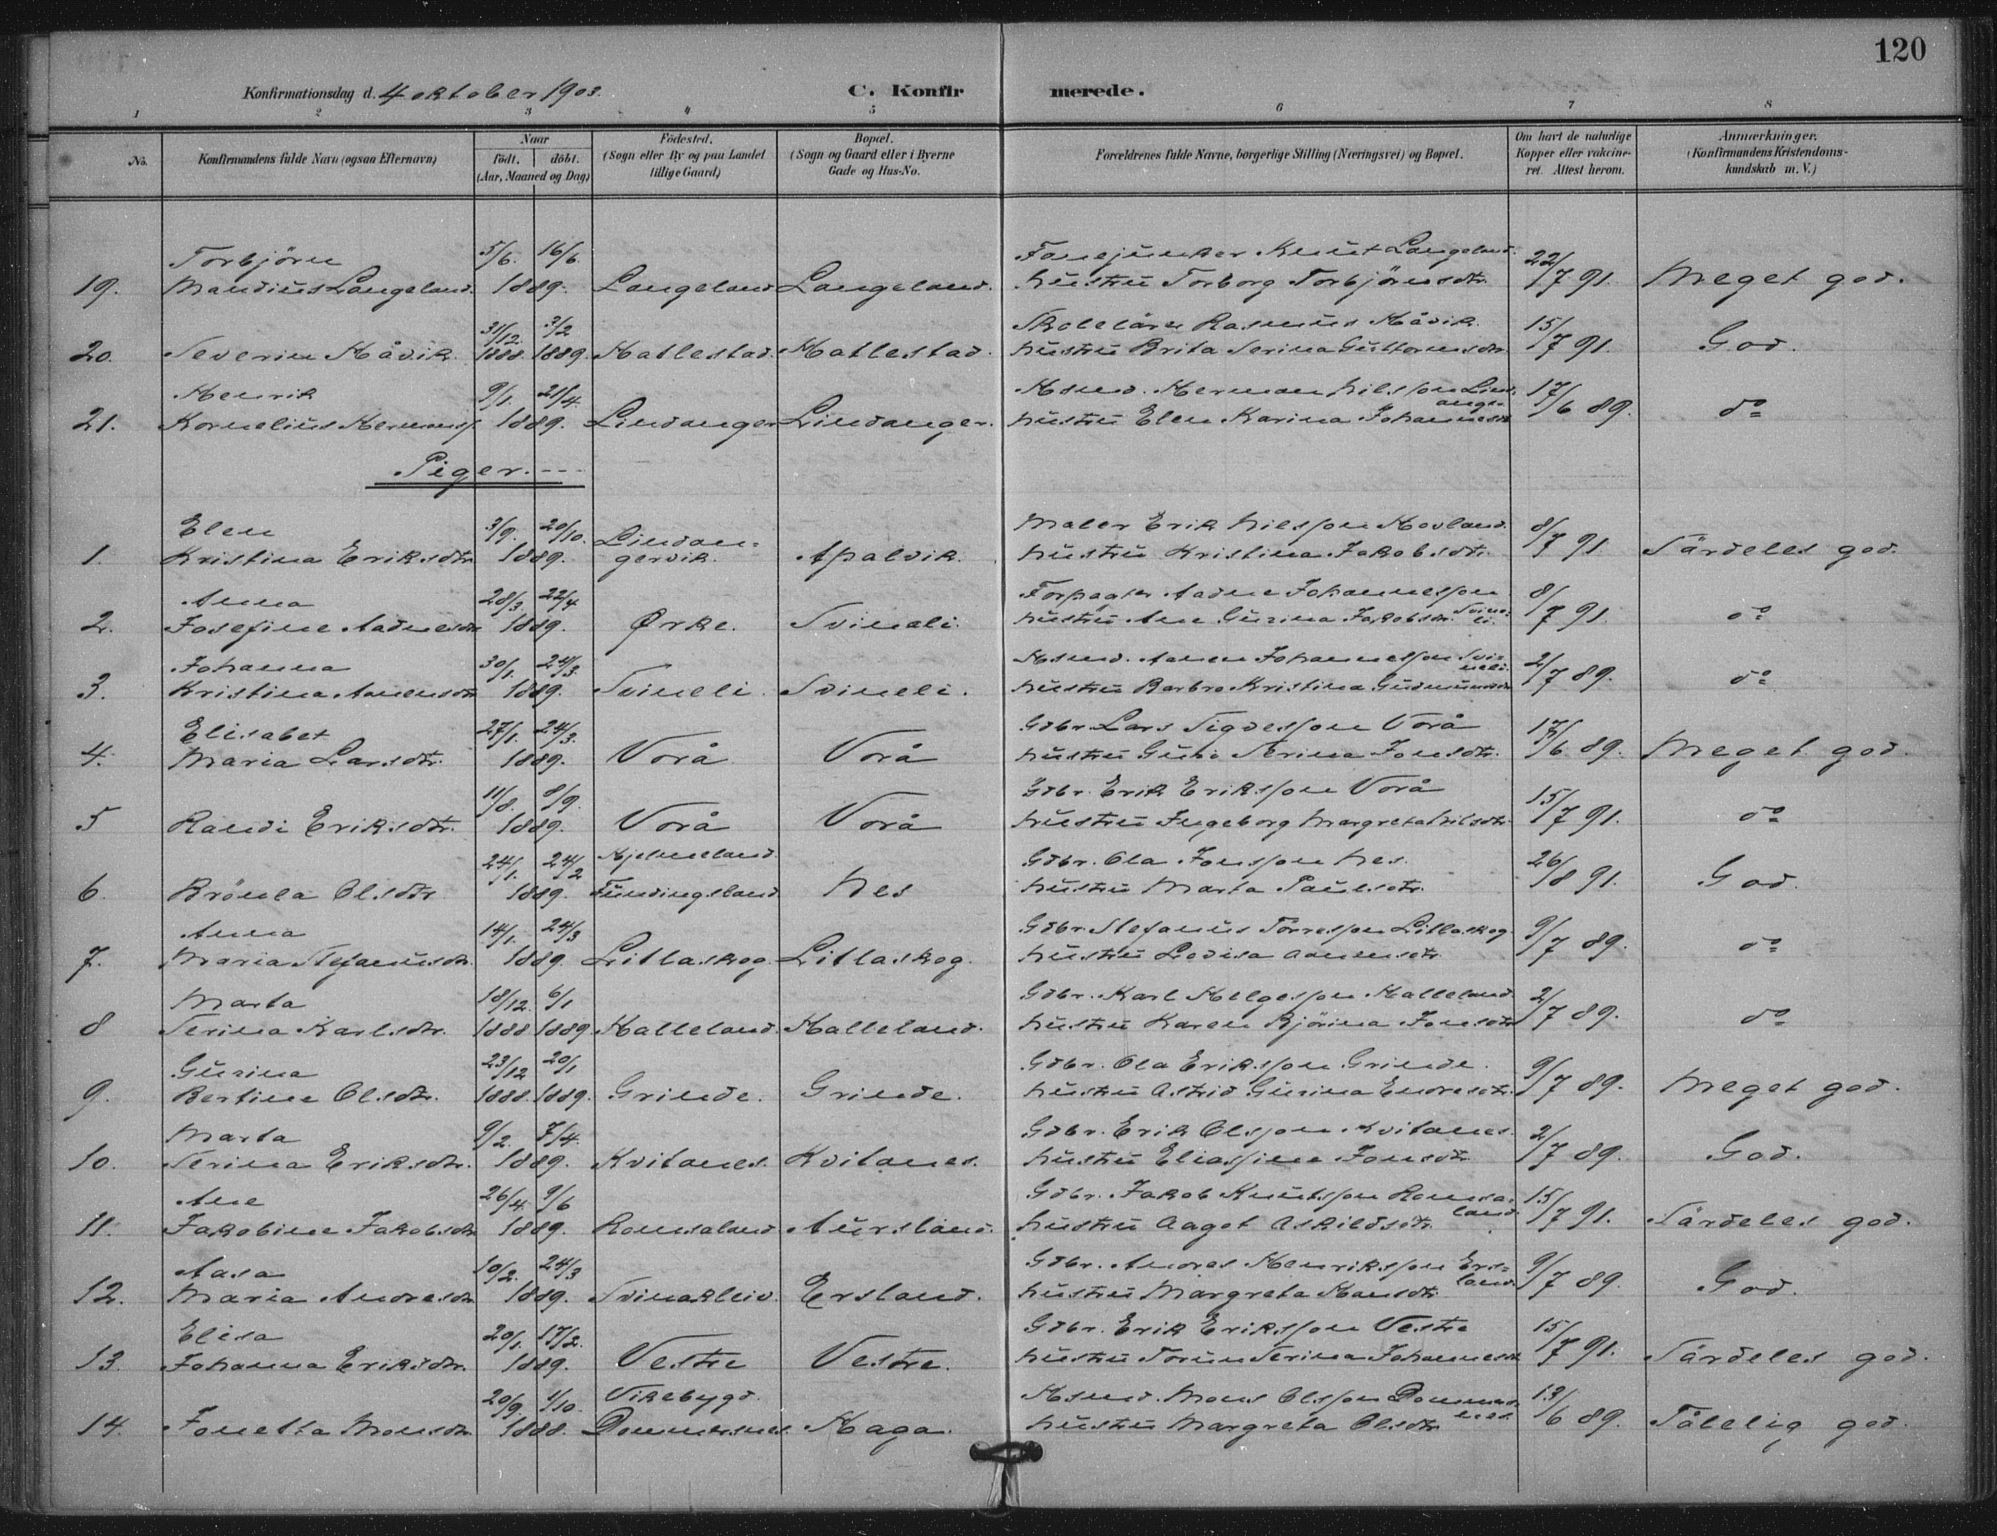 120
Konfirmationsdag d. 4 oktober 1903.
C. Konfirmerede.
1 2 3 4 5 6 7 8
No.
Konfirmandens fulde Navn (ogsaa Efternavn)
Naar
født, døbt.
(Aar, Maaned og Dag)
Fødested.
(Sogn eller By og paa Landet
tillige Gaard)
Bopæl.
(Sogn og Gaard eller i Byerne
Gade og Hus-No.
Forældrenes fulde Navne, borgerlige Stilling (Næringsvei) og Bopæl.
Om havt de naturlige
Kopper eller vakcine-
ret. Attest herom.
Anmærkninger.
(Konfirmandens Kristendoms-
kundskab m. V.)
Torbjörn 5/6. 16/6. Fanejunker Knut Langeland. 22/
19. Mandius Langeland. 1889. Langeland Langeland. hustru Torborg Torbjörnsdtr. 7 91. Meget god.
31/12 3/2 Skolelärer Rasmus Håvik. 15/
20. Severin Håvik. 1888. 1889. Hatlestad. Hatlestad. hustru Brita Serina Guttormsdtr. 7 91. God.
Henrik 9/1. 21/4. Hsmd. Herman Nilsson Lind- 17/
21. Kornelius Hermans. 1889. Lindanger Lindanger. hustru Elen Karina Johannesdtr. anger 6 89. do
Piger.
Elen 3/9. 20/10. Lindan- Maler Erik Nilsson Hovland. 8/
1. Kristina Eriksdtr. 1889. gervik. Apalvik. hustru Kristina Jakobsdtr. 7 91. Särdeles god.
Anna 28/3 22/4 Forpagter Aadne Johannesson 8/
2. Josefine Aadnesdtr 1889. Ørke. Svineli. hustru Ane Gurina Jakobsdtr. Svine- li. 7 91. do
Johanna 30/1. 24/3. Hsmd. Aanen Johannesson Svi- neli. 2/
3. Kristina Aanensdtr 1889. Svineli. Svineli. hustru Barbro Kristina Gudmundsdtr 7 89. do
Elisabet 27/1. 24/3. Gdbr. Lars Sigvesson Vorå 17/
4. Maria Larsdtr. 1889. Vorå Vorå hustru Serina Jonsdtr. 6 89. Meget god.
11/8. 8/9. Gdbr. Erik Eriksson Vorå 15/
5 Randi Eriksdtr. 1889. Vorå Vorå hustru Ingeborg Margreta Nilsdtr. 7 91. do
24/1. 24/2 Hjelmeland. Gdbr. Ola Jonsson Nes. 26/
6. Brönla Olsdtr 1889. Fundingsland Nes hustru Marta Paulsdtr. 8 91. God.
Anna 14/1. 24/3 Gdbr. Stefanus Torresson Litlaskog 9/
7. Maria Stefanusdtr. 1889. Litlaskog. Litlaskog. hustru Lovisa Aanensdtr. 7 89. do
Marta 18/12. 6/1 Gdbr. Karl Helgesson Halleland. 2/
8 Serina Karlsdtr. 1888 1889. Halleland. Halleland. hustru Karen Björina Jonsdtr 7 89. do
Gurina 23/12 20/1 Gdbr. Ola Eriksson Grinde. 9/
9. Bertine Olsdtr. 1888. 1889. Grinde. Grinde. hustru Astrid Gurina Endresdtr. 7 89. Meget god.
Marta 9/2. 7/4. Gdbr. Erik Olsson Kvitanes. 2/
10. Serina Eriksdtr. 1889. Kvitanes. Kvitanes. hustru Eliassine Jonsdtr 7 89. God.
Ane 26/4. 9/6 Gdbr. Jakob Knutsson Romsa- land. 15/
11. Jakobine Jakobsdtr 1889. Romsaland. Aursland. hustru Aagot Askildsdtr. 7 91. Särdeles god.
Aasa 10/2. 24/3 Gdbr. Andres Henriksson Ers- land. 9/
12. Maria Andresdtr 1889. Svinakleiv. Ersland. hustru Margreta Hansdtr. 7 89. God.
Elisa 20/1. 17/2. Gdbr. Erik Eriksson Vestre 15/
13. Johanna Eriksdtr. 1889. Vestre Vestre. hustru Torun Serina Johannesdtr 7 91. Särdeles god.
20/9. 1/10. Vikebygd. Hsmd. Mons Olsson Dommers- nes. 13/
14. Jonetta Monsdtr. 1888. Dommersnes. Haga. hustru Margreta Olsdtr 6 89. Tålelig god.